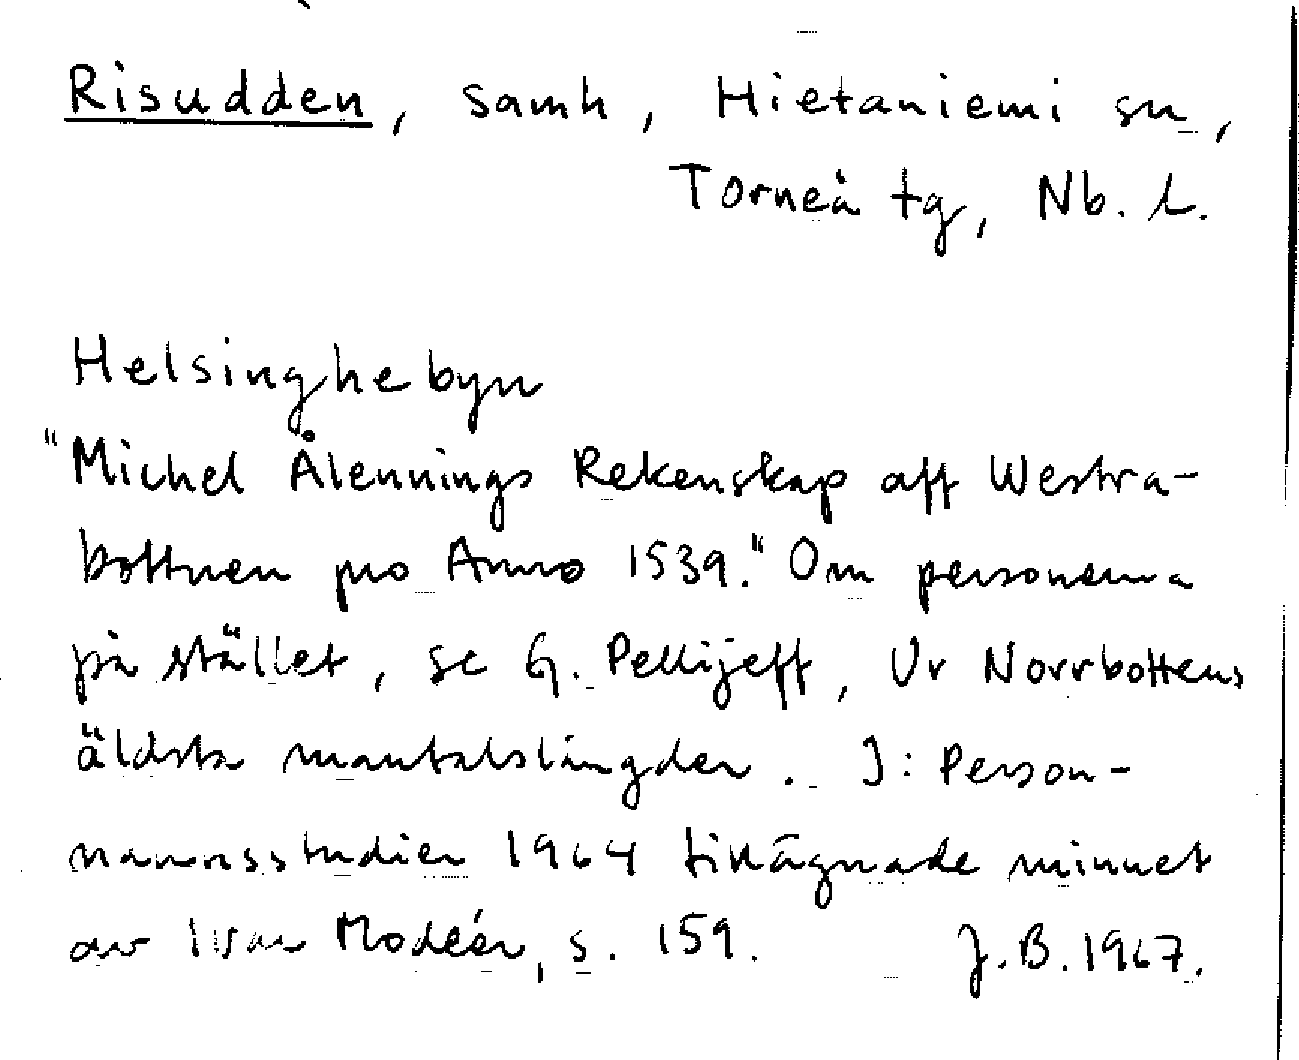 Risudden, samh, Hietaniemi sn,
Torneå tg, Nb. l.
Helsinghebyn
"Michel Ålennings Rekenskap aff Westra-
bottnen pro Anno 1539." Om personerna
på stället, se G. Pellijeff, Ur Norrbottens
äldsta mantalslängder. I: Person-
namnsstudier 1964 tillägnade minnet
av Ivar Modéer, s. 159. J.B. 1967.